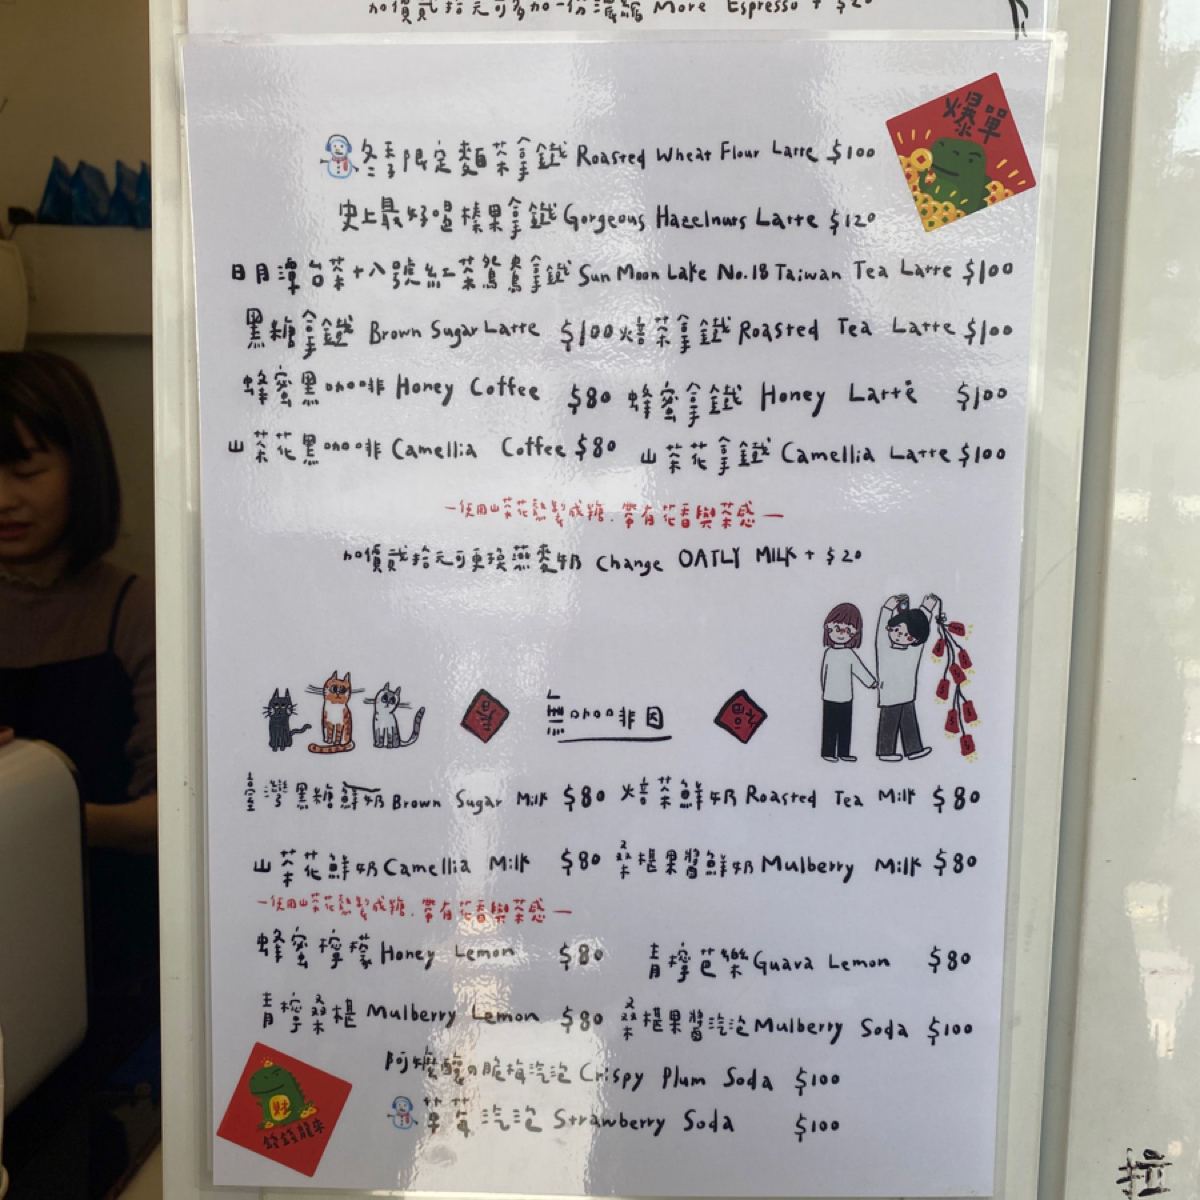 加價貳拾元可多加一份濃縮 More Espresso + $20
爆單
冬季限定麵茶拿鐵 Roasted Wheat Flour Latte $100
史上最好喝榛果拿鐵 Gorgeous Hazelnuts Latte $120
日月潭台茶十八號紅茶鴛鴦拿鐵 Sun Moon Lake No.18 Taiwan Tea Latte $100
黑糖拿鐵 Brown Sugar Latte $100 焙茶拿鐵 Roasted Tea Latte $100
蜂蜜黑咖啡 Honey Coffee $80 蜂蜜拿鐵 Honey Latte $100
山茶花黑咖啡 Camellia Coffee $80 山茶花拿鐵 Camellia Latte $100
—使用山茶花熬製成糖.帶有花香與茶感—
加價貳拾元可更換燕麥奶 Change OATLY MILK + $20
無咖啡因
臺灣黑糖鮮奶 Brown Sugar Milk $80 焙茶鮮奶 Roasted Tea Milk $80
山茶花鮮奶 Camellia Milk $80 桑椹果醬鮮奶 Mulberry Milk $80
—使用山茶花熬製成糖.帶有花香與茶感—
蜂蜜檸檬 Honey Lemon $80 青檸芭樂 Guava Lemon $80
青檸桑椹 Mulberry Lemon $80 桑椹果醬汽泡 Mulberry Soda $100
阿嬤釀的脆梅汽泡 Crispy Plum Soda $100
草莓汽泡 Strawberry Soda $100
財
錢錢龍來
拉